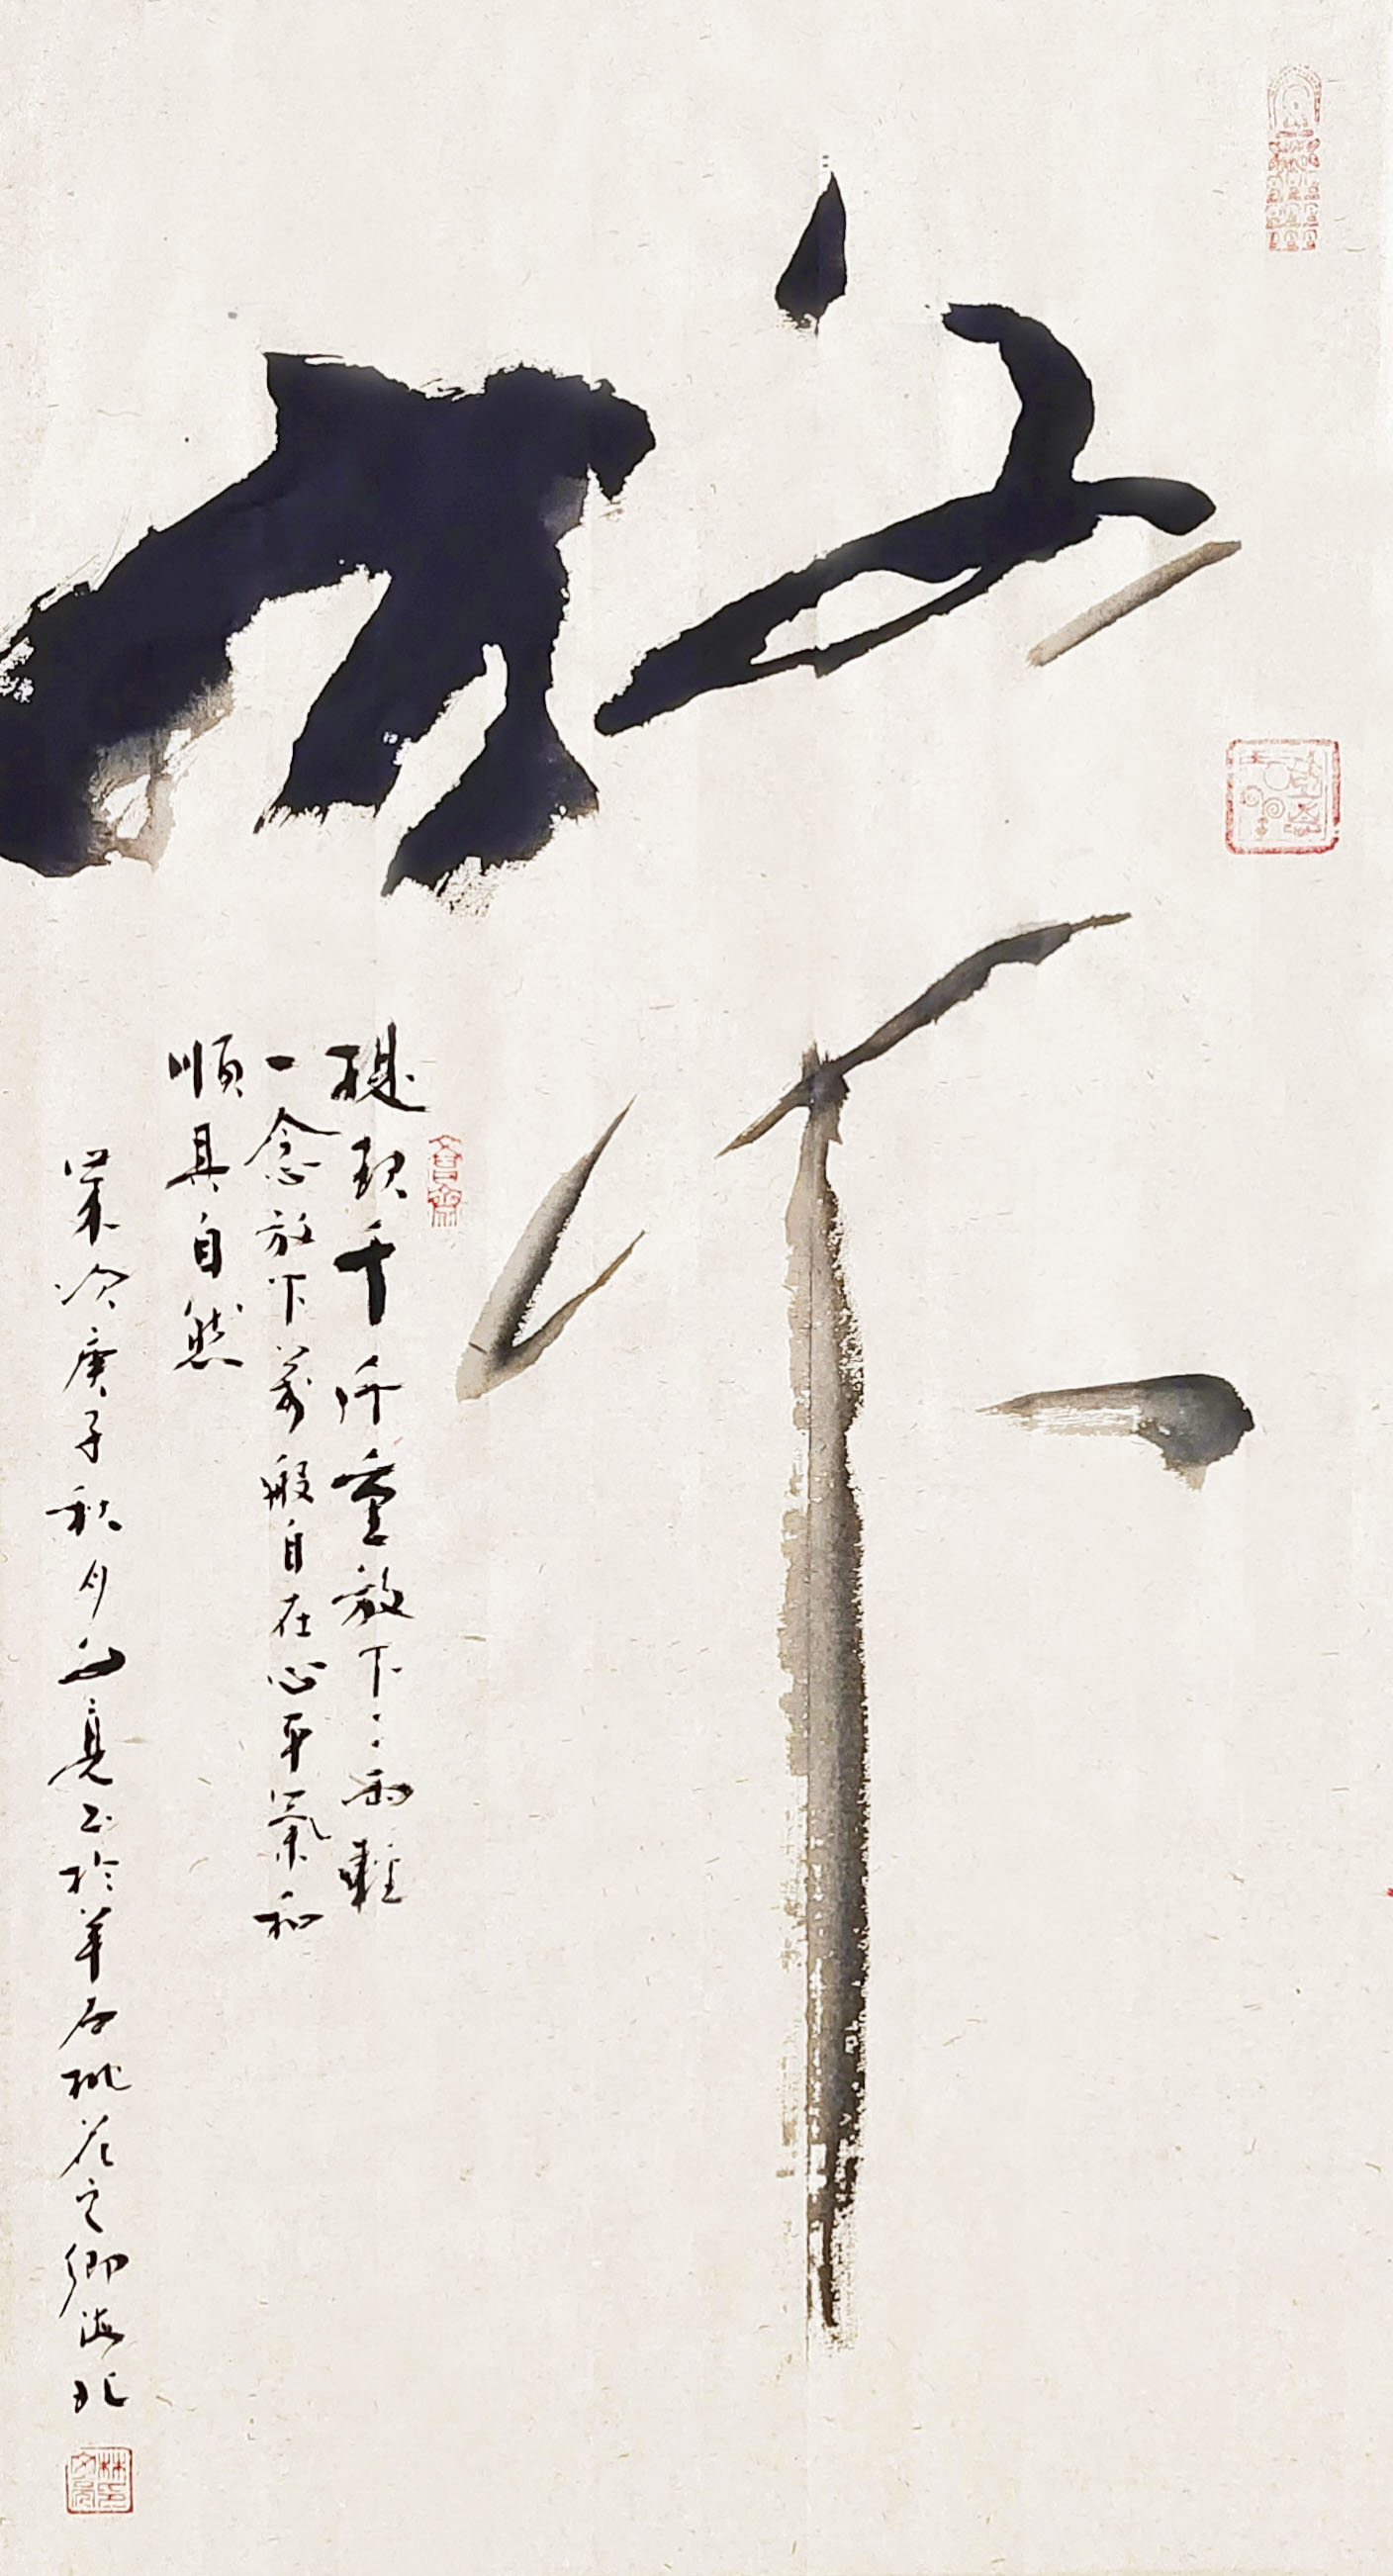 放下
提起千斤重放下二兩輕
一念放下萬般自在心平氣和
順其自然
歲次庚子秋月文亮書於羊石桃花之鄉海北